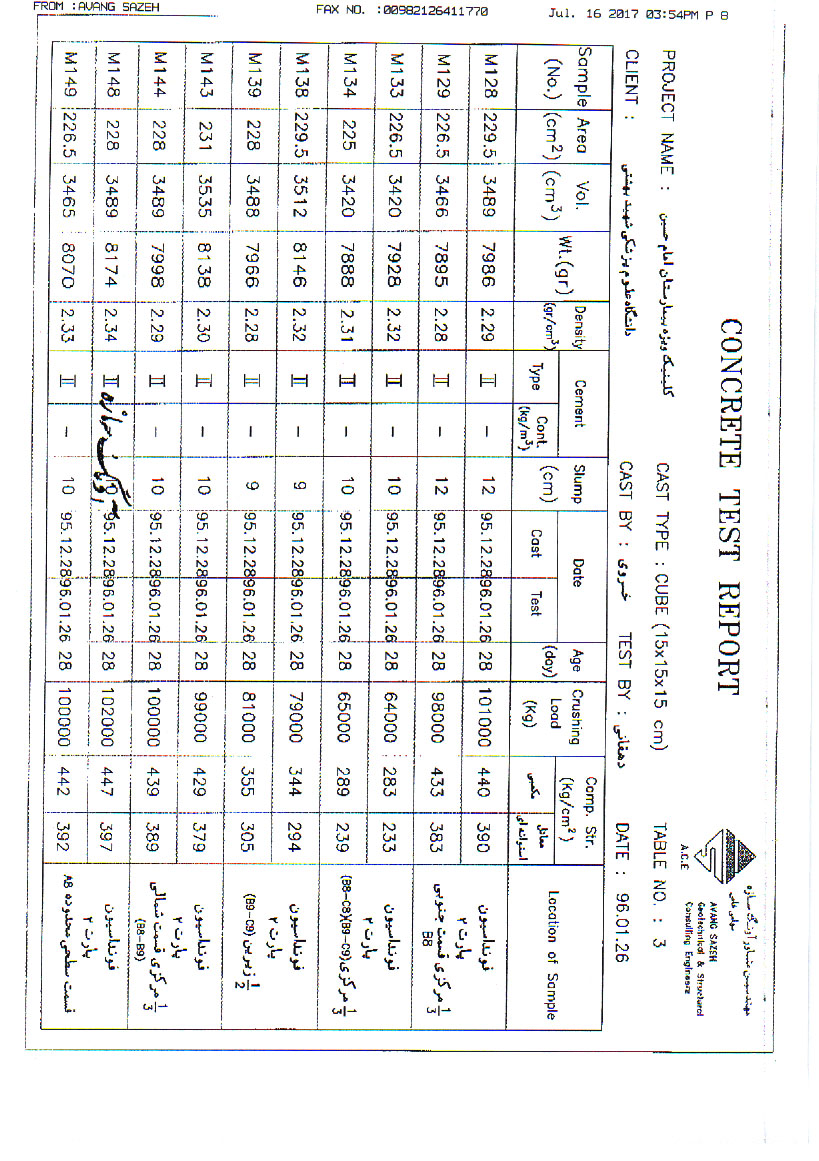 FROM :AVANG SAZEH FAX NO. :00982126411770 Jul. 16 2017 03:54PM P 8
CONCRETE TEST REPORT
مهندسین مشاور آونگ سازه
سهامی خاص
AVANG SAZEH
Geotechnical & Structural
Consulting Engineers
A.C.E
PROJECT NAME : کلینیک ویژه بیمارستان امام حسین CAST TYPE : CUBE (15x15x15 cm) TABLE NO. : 3
CLIENT : دانشگاه علوم پزشکی شهید بهشتی CAST BY : خسروی TEST BY : دهقانی DATE : 96.01.26
Sample (No.) Area (cm2) Vol. (cm3) Wt.(gr) Density (gr/cm3) Cement Type Cont. (kg/m3) Slump (cm) Date Cast Test Age (day) Crushing Load (Kg) Comp. Str. (Kg/cm2) مکعبی معادل استوانه ای Location of Sample
M128 229.5 3489 7986 2.29 II – 12 95.12.28 96.01.26 28 101000 440 390 فونداسیون
پارت ۲
M129 226.5 3466 7895 2.28 II – 12 95.12.28 96.01.26 28 98000 433 383 1/3 مرکزی قسمت جنوبی
B8
M133 226.5 3420 7928 2.32 II – 10 95.12.28 96.01.26 28 64000 283 233 فونداسیون
پارت ۲
M134 225 3420 7888 2.31 II – 10 95.12.28 96.01.26 28 65000 289 239 1/3 مرکزی (B8-C8)(B9-C9)
M138 229.5 3512 8146 2.32 II – 9 95.12.28 96.01.26 28 79000 344 294 فونداسیون
پارت ۲
M139 228 3488 7966 2.28 II – 9 95.12.28 96.01.26 28 81000 355 305 1/2 زیرین (B9-C9)
M143 231 3535 8138 2.30 II – 10 95.12.28 96.01.26 28 99000 429 379 فونداسیون
پارت ۲
M144 228 3489 7998 2.29 II – 10 95.12.28 96.01.26 28 100000 439 389 1/3 مرکزی قسمت شمالی
(B8-B9)
M148 228 3489 8174 2.34 II – 10 95.12.28 96.01.26 28 102000 447 397 فونداسیون
پارت ۲
M149 226.5 3465 8070 2.33 II – 10 95.12.28 96.01.26 28 100000 442 392 قسمت سطحی محدوده A8
آونگ سازه